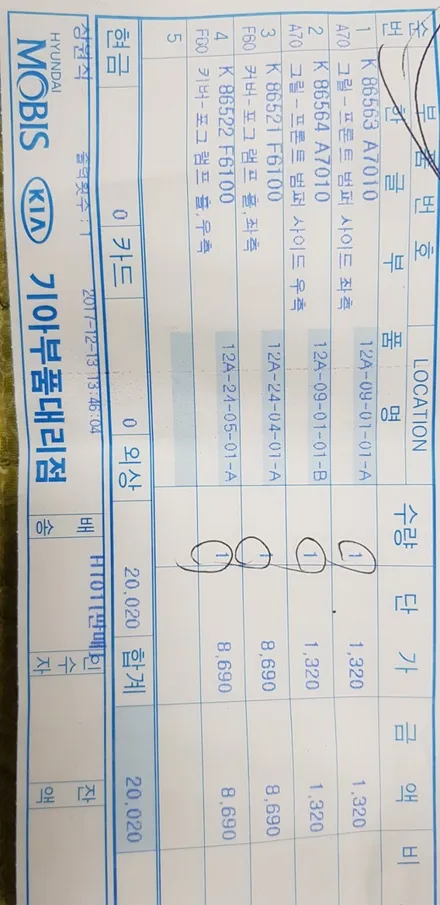 순번 부품번호 LOCATION 수량 단가 금액 비
한글부품명
1 K 86563 A7010 12A-09-01-01-A 1 1,320 1,320
A70 그릴-프론트 범퍼 사이드 좌측
2 K 86564 A7010 12A-09-01-01-B 1 1,320 1,320
A70 그릴-프론트 범퍼 사이드 우측
3 K 86521 F6100 12A-24-04-01-A 1 8,690 8,690
F60 커버-포그 램프 홀,좌측
4 K 86522 F6100 12A-24-05-01-A 1 8,690 8,690
F60 커버-포그 램프 홀,우측
5
현금 0 카드 0 외상 20,020 합계 20,020
출력횟수:1 2017-12-13 13:46:04 배송 인수자 잔액
HYUNDAI
MOBIS KIA 기아부품대리점